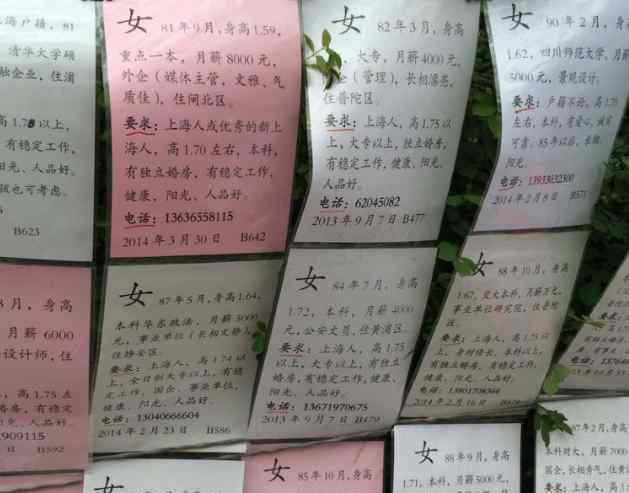 海户籍,81
清华大学硕
融企业,住浦
高1.78以上,
有稳定工作,
阳光、人品好。
孩也可考虑。
B623
女 81年9月,身高1.59,
重点一本,月薪8000元,
外企(媒体主管,文雅、气
质佳),住闸北区。
要求:上海人或优秀的新上
海人,高1.70左右,本科,
有独立婚房,有稳定工作,
健康,阳光、人品好。
电话:13636558115
2014年3月30日 B642
女 82年3月,身高
大专,月薪4000元,
企(管理),长相漂亮,
住普陀区。
要求:上海人,高1.75以
上,大专以上,有独立婚房,
有稳定工作,健康、阳光、
人品好。
电话:62045082
2013年9月7日 B477
女 90年2月,身高
1.62,四川师范大学,月薪
5000元,景观设计。
要求:户籍不论,高1.70
左右,本科,有爱心,诚实
可靠,85年以后,长相、
阳光。
电话:13933032300
2014年2月8日 B571
8月,身高
月薪6000
设计师,住
高1.75左
有稳定
人品好。
909115
日 B592
女 87年5月,身高1.64,
本科华东政法,月薪5000
元,事业单位(长相文静),
住静安区。
要求:上海人,高1.74以
上,全日制大专以上,有稳
定工作,国企、事业单位,
健康、阳光、人品好。
电话:13040666604
2014年2月23日 B586
女 84年7月,身高
1.72,本科,月薪4000
元,公安文员,住黄浦区。
要求:上海人,高1.75
以上,大专以上,有独立
婚房,有稳定工作,健康、
阳光、人品好。
电话:13671970675
2013年9月7日 B470
女 88年10月,身高
1.67,交大本科,月薪万元,
事业单位研究院,住普陀
区。
要求:上海人,高1.75以
上,身材修长,本科以上,
有独立婚房,有稳定工作,
健康、阳光、人品好。
电话:13801798364
2014年2月16日
女
女 85年10月,身高
女 86年9月,身高
1.71,本科,月薪5000元,
87年2月,身高
本科财大,月薪7000
国企,长相秀气,住黄浦
要求:上海人,高1.